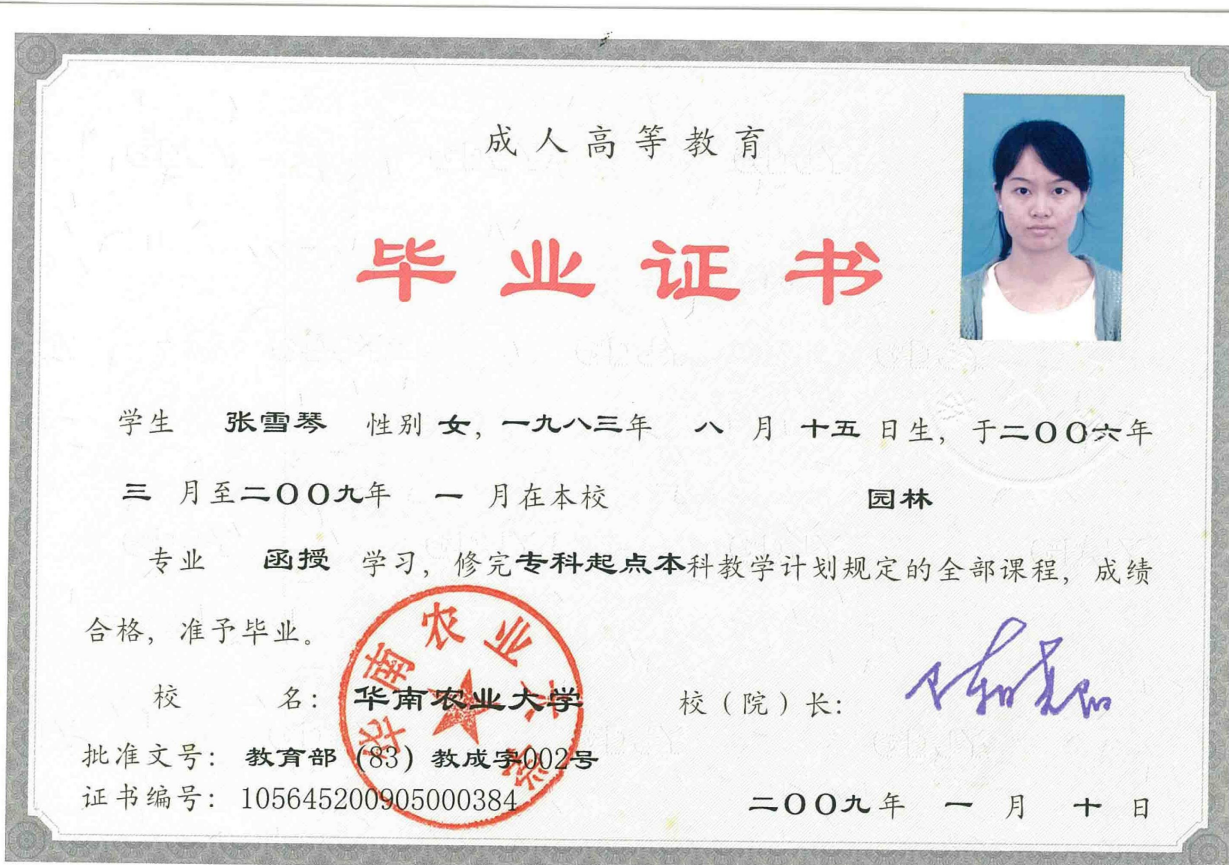 成人高等教育
毕业证书
学生 张雪琴 性别 女，一九八三年 八 月 十五 日生，于二〇〇六年
三 月至二〇〇九年 一 月在本校 园林
专业 函授 学习，修完专科起点本科教学计划规定的全部课程，成绩
合格，准予毕业。
校 名：华南农业大学 校（院）长：
批准文号：教育部（83）教成字002号
证书编号：105645200905000384
二〇〇九年 一 月 十 日
华南农业大学